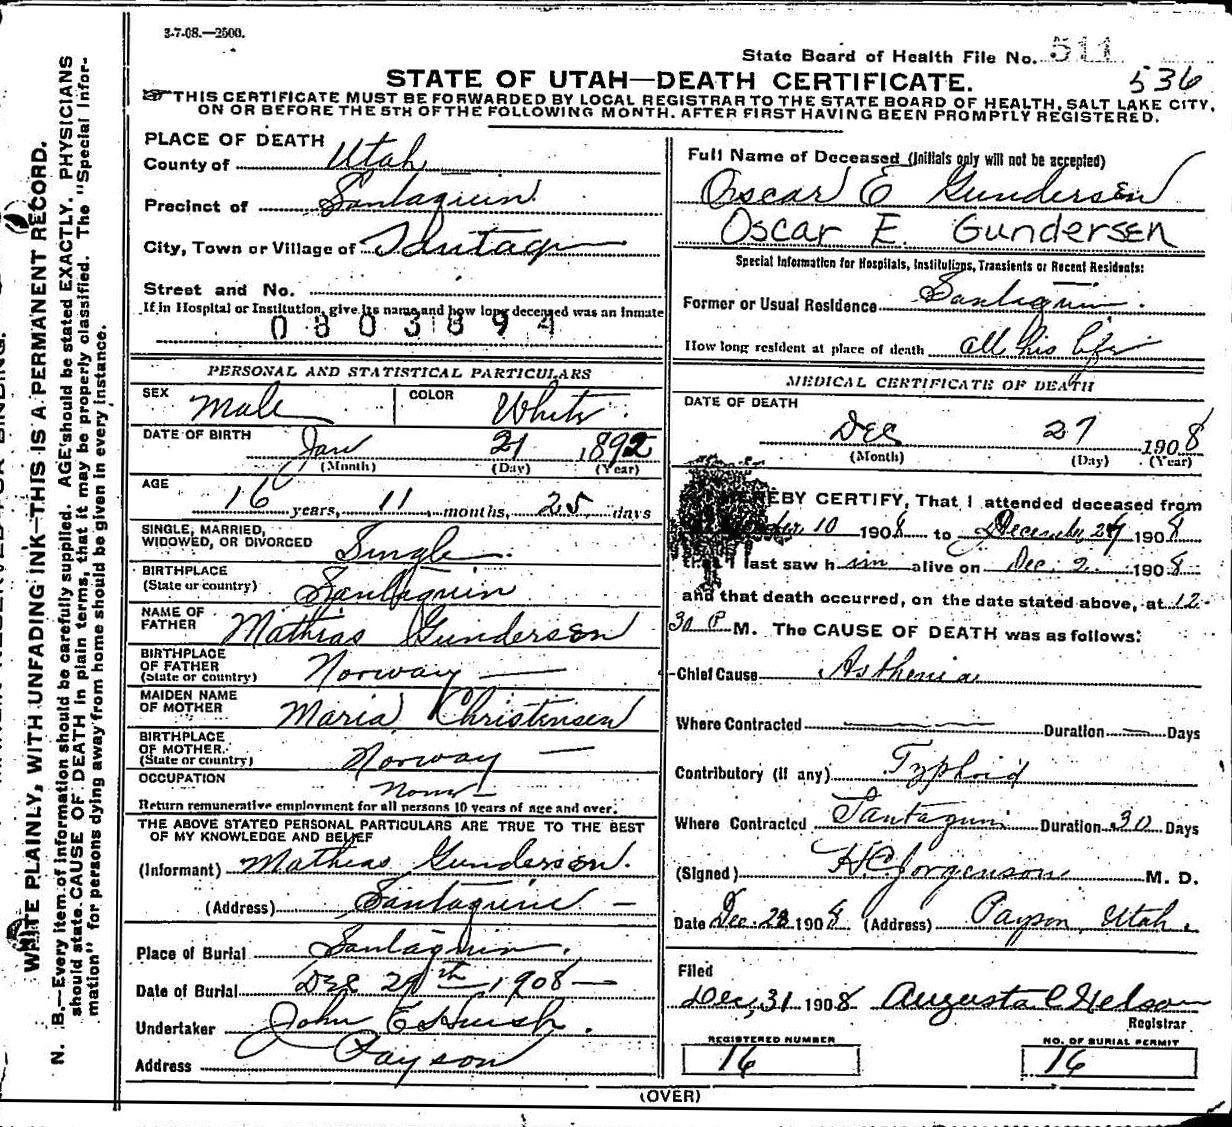 3-7-08.—2500.
State Board of Health File No. 511
536
STATE OF UTAH—DEATH CERTIFICATE.
THIS CERTIFICATE MUST BE FORWARDED BY LOCAL REGISTRAR TO THE STATE BOARD OF HEALTH, SALT LAKE CITY,
ON OR BEFORE THE 5TH OF THE FOLLOWING MONTH. AFTER FIRST HAVING BEEN PROMPTLY REGISTERED.
PLACE OF DEATH
County of Utah
Precinct of Santaquin
City, Town or Village of Santaq
Street and No.
If in Hospital or Institution, give its name and how long deceased was an inmate
0803894
PERSONAL AND STATISTICAL PARTICULARS
SEX Male COLOR White
DATE OF BIRTH Jan 21 1892
(Month) (Day) (Year)
AGE
16 years, 11 months, 25 days
SINGLE, MARRIED,
WIDOWED, OR DIVORCED Single
BIRTHPLACE
(State or country) Santaquin
NAME OF
FATHER Mathias Gundersen
BIRTHPLACE
OF FATHER
(State or country) Norway —
MAIDEN NAME
OF MOTHER Maria Christensen
BIRTHPLACE
OF MOTHER
(State or country) Norway —
OCCUPATION None
Return remunerative employment for all persons 10 years of age and over.
THE ABOVE STATED PERSONAL PARTICULARS ARE TRUE TO THE BEST
OF MY KNOWLEDGE AND BELIEF
(Informant) Mathias Gundersen.
(Address) Santaquin —
Place of Burial Santaquin.
Date of Burial Dec 29th 1908 —
Undertaker John E Huish.
Address Payson
Full Name of Deceased (Initials only will not be accepted)
Oscar E Gundersen
Oscar E. Gundersen
Special Information for Hospitals, Institutions, Transients or Recent Residents:
Former or Usual Residence Santaquin.
How long resident at place of death all his life
MEDICAL CERTIFICATE OF DEATH
DATE OF DEATH
Dec 27 1908
(Month) (Day) (Year)
HEREBY CERTIFY, That I attended deceased from
10 1908 to December 27 1908
that I last saw him alive on Dec. 2 1908
and that death occurred, on the date stated above, at 12-
30 P M. The CAUSE OF DEATH was as follows:
Chief Cause Asthenia
Where Contracted Duration — Days
Contributory (if any) Typhoid
Where Contracted Santaquin Duration 30 Days
(Signed) H C Jorgenson M. D.
Date Dec. 28 1908 (Address) Payson, Utah.
Filed
Dec, 31 1908 Augusta C Nelson
Registrar
REGISTERED NUMBER
16
NO. OF BURIAL PERMIT
16
(OVER)
WRITE PLAINLY, WITH UNFADING INK—THIS IS A PERMANENT RECORD.
N. B.—Every item of information should be carefully supplied. AGE should be stated EXACTLY. PHYSICIANS
should state CAUSE OF DEATH in plain terms, that it may be properly classified. The "Special Infor-
mation" for persons dying away from home should be given in every instance.